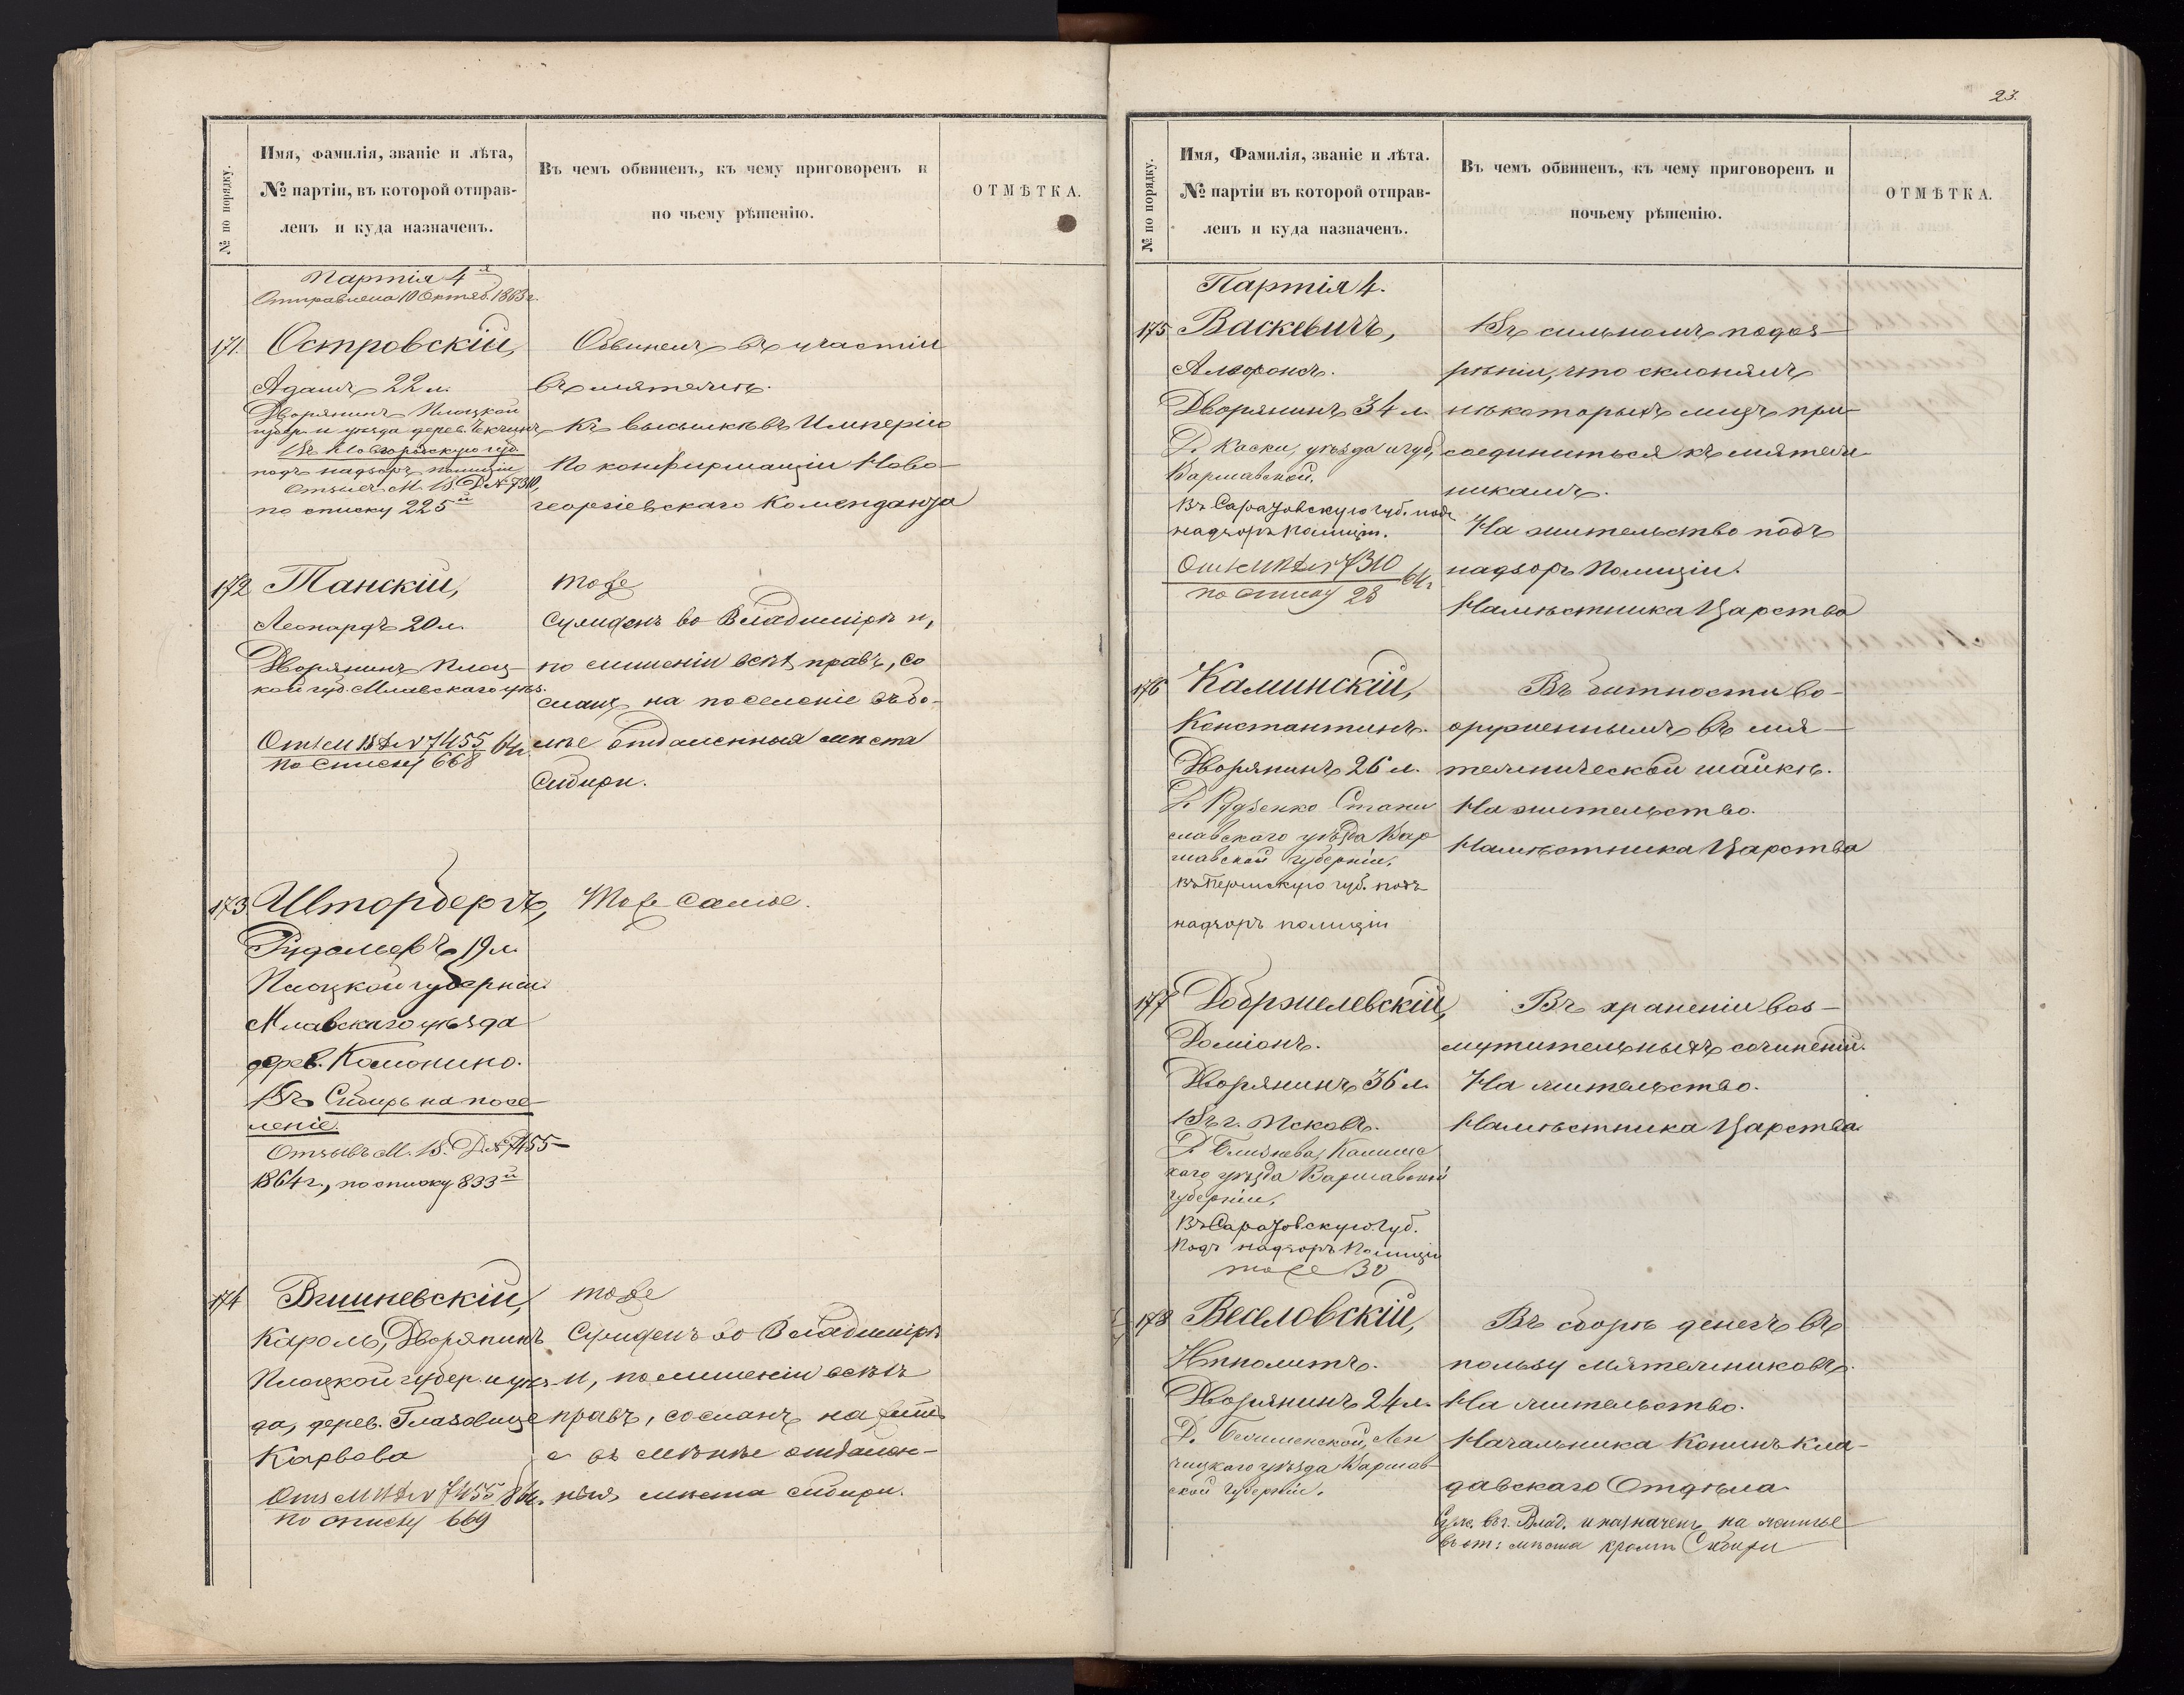 № по порядку.
Имя, фамилія, званіе и лѣта,
№ партіи, въ которой отправ-
ленъ и куда назначенъ.
Въ чемъ обвиненъ, къ чему приговоренъ и
по чьему рѣшенію.
ОТМѢТКА.
Партія 4я
Отправлена 10 Октяб. 1863 г.
171. Островскій,
Адамъ 22 л.
Дворянинъ Плоцкой
губер. и уѣзда дерев.
Въ Новгородскую губ.
подъ надзоръ полиціи
Отзывъ М. В. Д. № 7310,
по списку 225й
Обвиненъ въ участіи
въ мятежѣ.
Къ высылкѣ въ Имперію
По конфирмаціи Ново-
георгіевскаго Коменданта
172 Танскій,
Леонардъ 20 л.
Дворянинъ Плоц-
кой губ. Млавскаго уѣз.
Отз М В Д № 7455 64 г.
по списку 668
тоже
Сужденъ во Владимірѣ и,
по лишеніи всѣхъ правъ, со
сланъ на поселеніе въ бо-
лѣе отдаленныя мѣста
Сибири.
173 Штормбергъ,
Рудольфъ 19 л.
Плоцкой губерніи
Млавскаго уѣзда
дерев. Комонино.
Въ Сибирь на посе-
леніе.
Отзывъ М. В. Д. № 7455 –
1864 г., по списку 833й
Тоже самое.
174 Вишневскій,
Кароль, Дворянинъ
Плоцкой губер. и уѣз-
да, дерев. Глазовице
Карвова
Отз М В Д № 7455 64 г.
по списку 669
тоже
Сужденъ во Владимірѣ
и, по лишеніи всѣхъ
правъ, сосланъ на жит
е въ менѣе отдален-
ныя мѣста Сибири.
23.
№ по порядку.
Имя, Фамилія, званіе и лѣта.
№ партіи въ которой отправ-
ленъ и куда назначенъ.
Въ чемъ обвиненъ, къ чему приговоренъ и
почьему рѣшенію.
ОТМѢТКА.
Партія 4.
175 Васкевичъ,
Альфонсъ.
Дворянинъ 34 л.
Д. Каски, уѣзда и губ.
Варшавской.
Въ Саратовскую губ. подъ
надзоръ полиціи.
Отз М В Д № 7310 64 г.
по списку 28
Въ сильномъ подоз-
рѣніи, что склонялъ
нѣкоторыхъ лицъ при-
соединиться къ мятеж-
никамъ.
На жительство подъ
надзоръ Полиціи.
Намѣстника Царства
176 Калинскій,
Константинъ.
Дворянинъ 26 л.
Д. Рудзенко Стани
славскаго уѣзда Вар
шавской губерніи.
Въ Пермскую губ. подъ
надзоръ полиціи
Въ бытности во-
оруженнымъ въ мя-
тежнической шайкѣ.
На жительство.
Намѣстника Царства
177 Добржелевскій,
Доміанъ.
Дворянинъ 36 л.
Въ г. Псковъ.
Д. Близнева, Калишс
каго уѣзда Варшавской
губерніи.
Въ Саратовскую Губ.
Подъ надзоръ Полиціи
тоже 30
Въ храненіи воз-
мутительныхъ сочиненій.
На жительство.
Намѣстника Царства.
178 Веселовскій,
Ипполитъ.
Дворянинъ 24 л.
Д. Лен
чицкаго уѣзда Варшав-
ской Губерніи.
Въ сборѣ денегъ въ
пользу мятежниковъ.
На жительство.
Начальника Конинъ Кла-
давскаго Отдѣла.
Суж. въ г. Влад. и назначенъ на жите
въ от: мѣста кромѣ Сибири